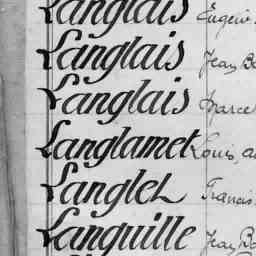 Langlais Eugène
Langlais Jean Ba
Langlais Marcel
Langlamet Louis, au
Langlet Francis
Languille Jean Ba